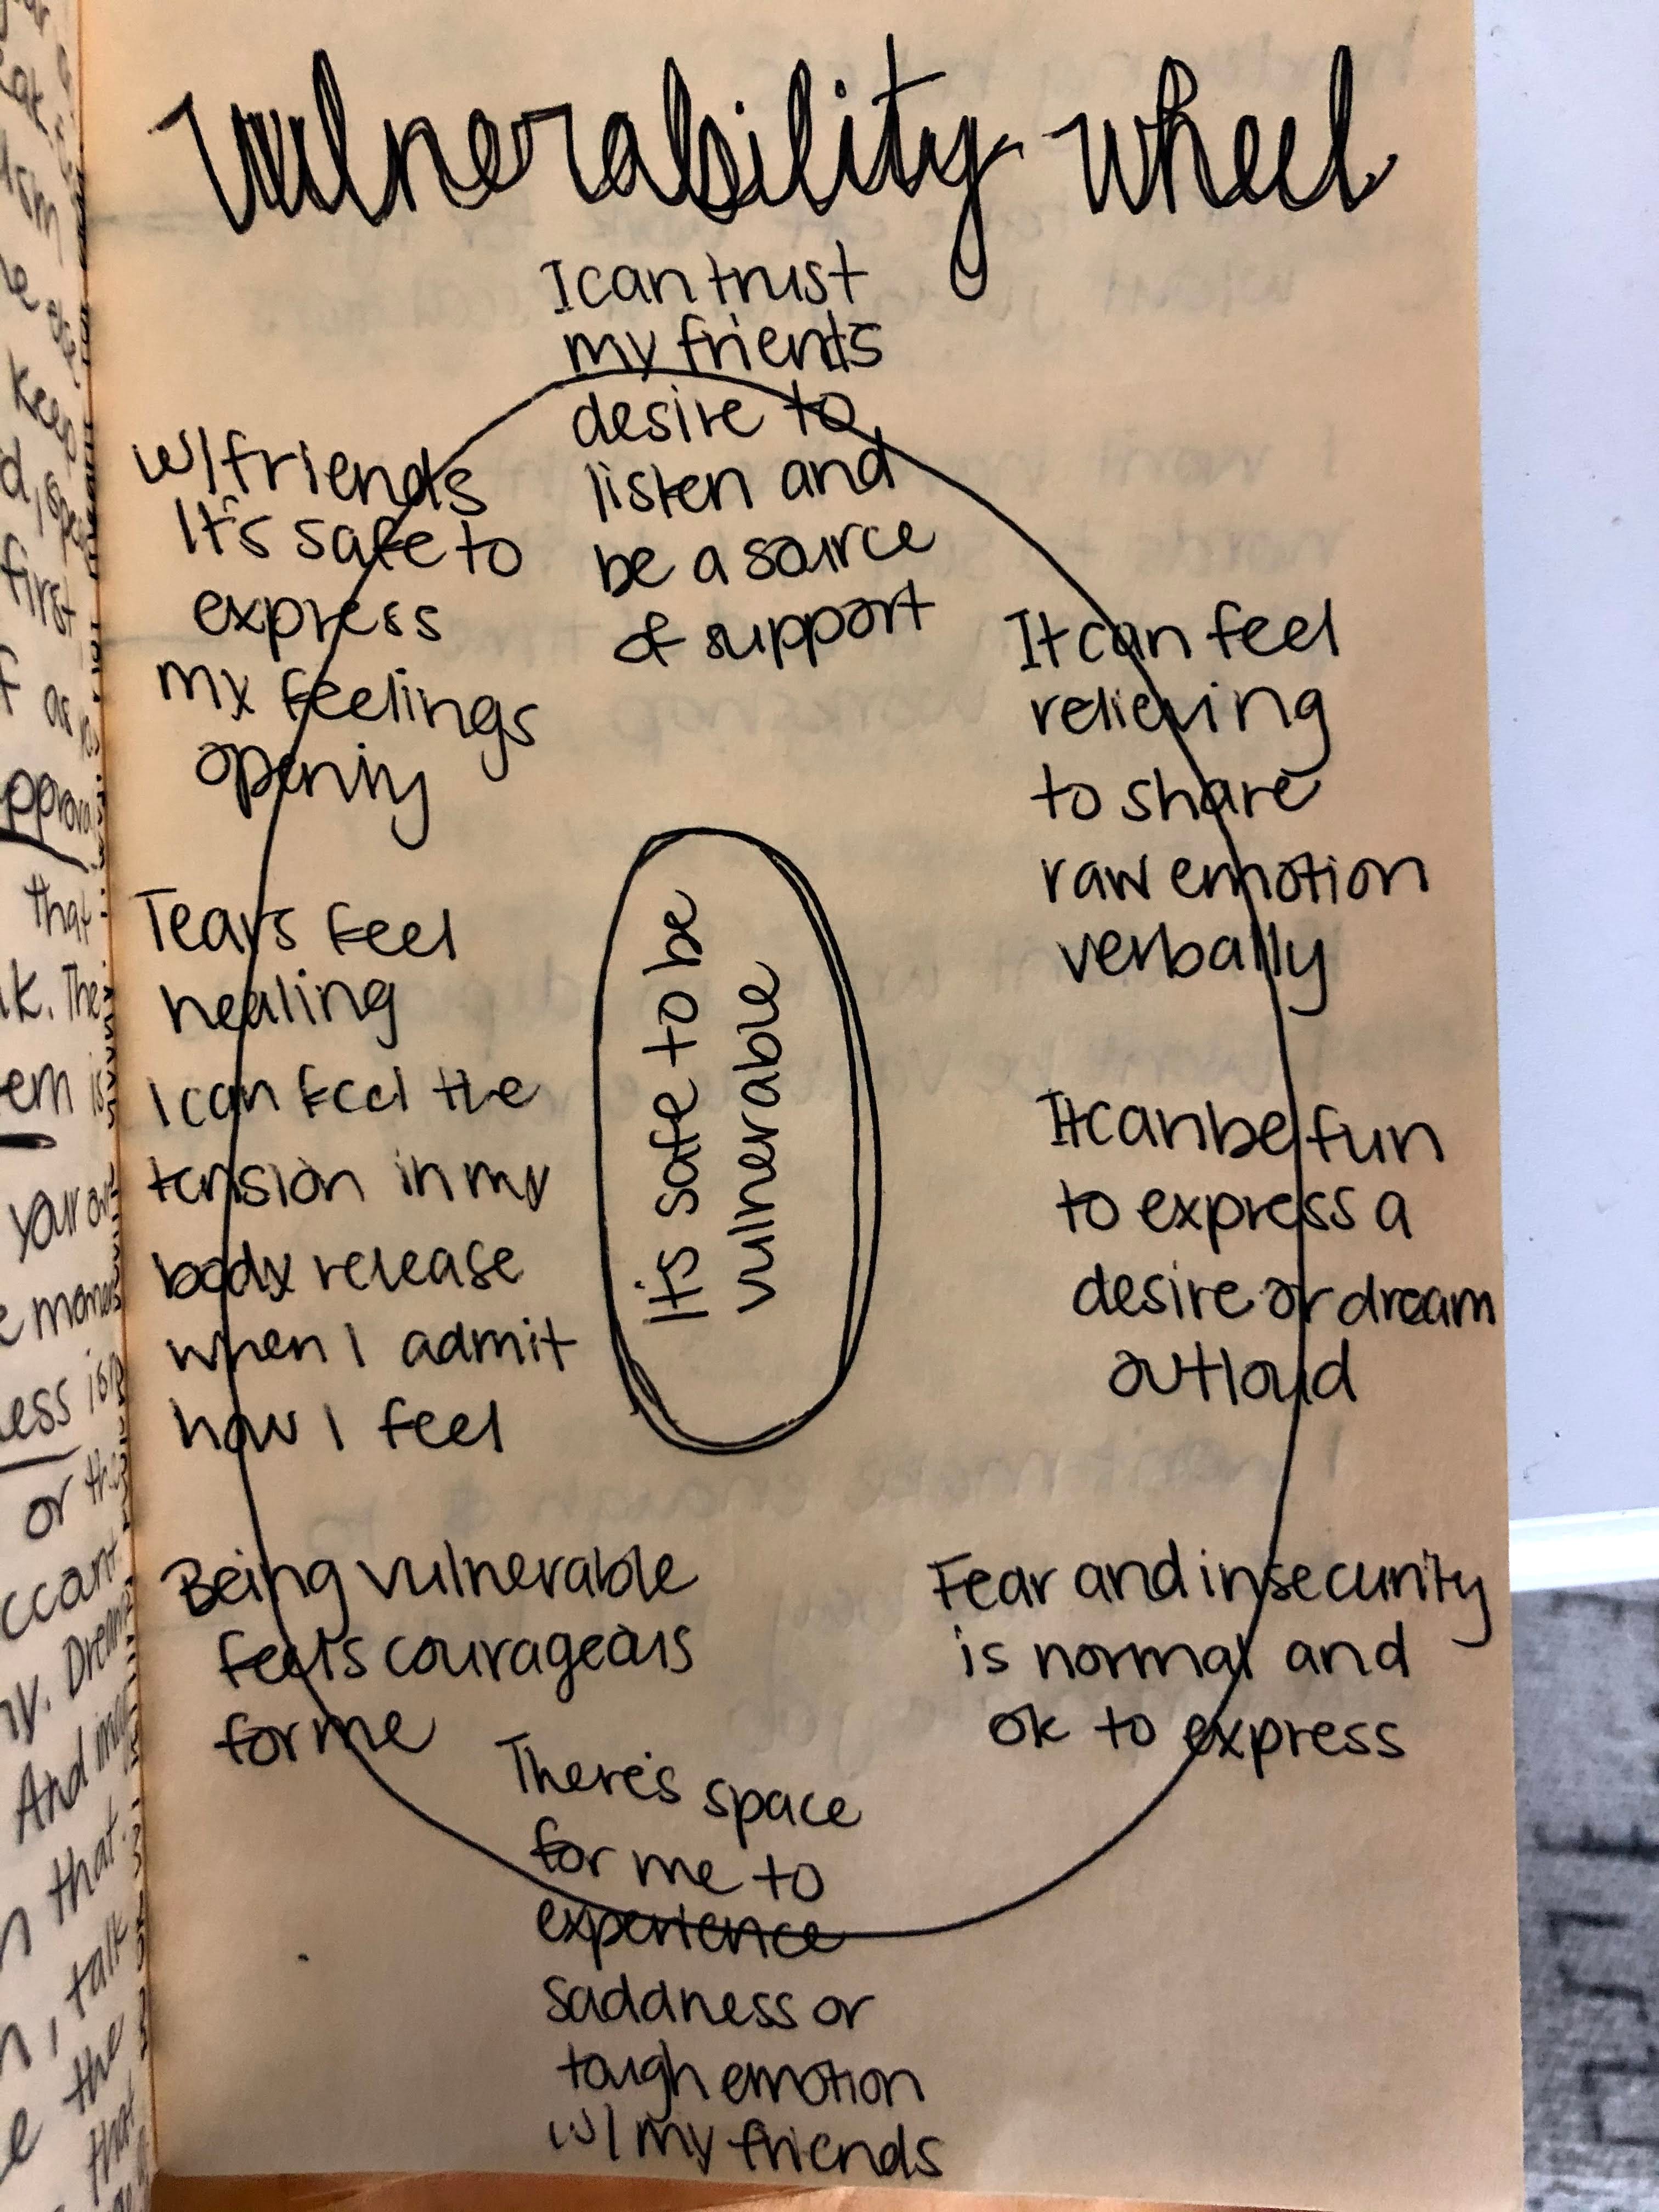 Vulnerability wheel
I can trust
my friends
desire to
listen and
be a source
of support
It can feel
relieving
to share
raw emotion
verbally
It can be fun
to express a
desire or dream
outloud
Fear and insecurity
is normal and
ok to express
There's space
for me to
experience
saddness or
tough emotion
w/ my friends
Being vulnerable
feels courageous
for me
I can feel the
tension in my
body release
when I admit
how I feel
Tears feel
healing
w/ friends
It's safe to
express
my feelings
openly
It's safe to be
vulnerable
keep
first
as
that
The
your
or
And
that
talk
the
that